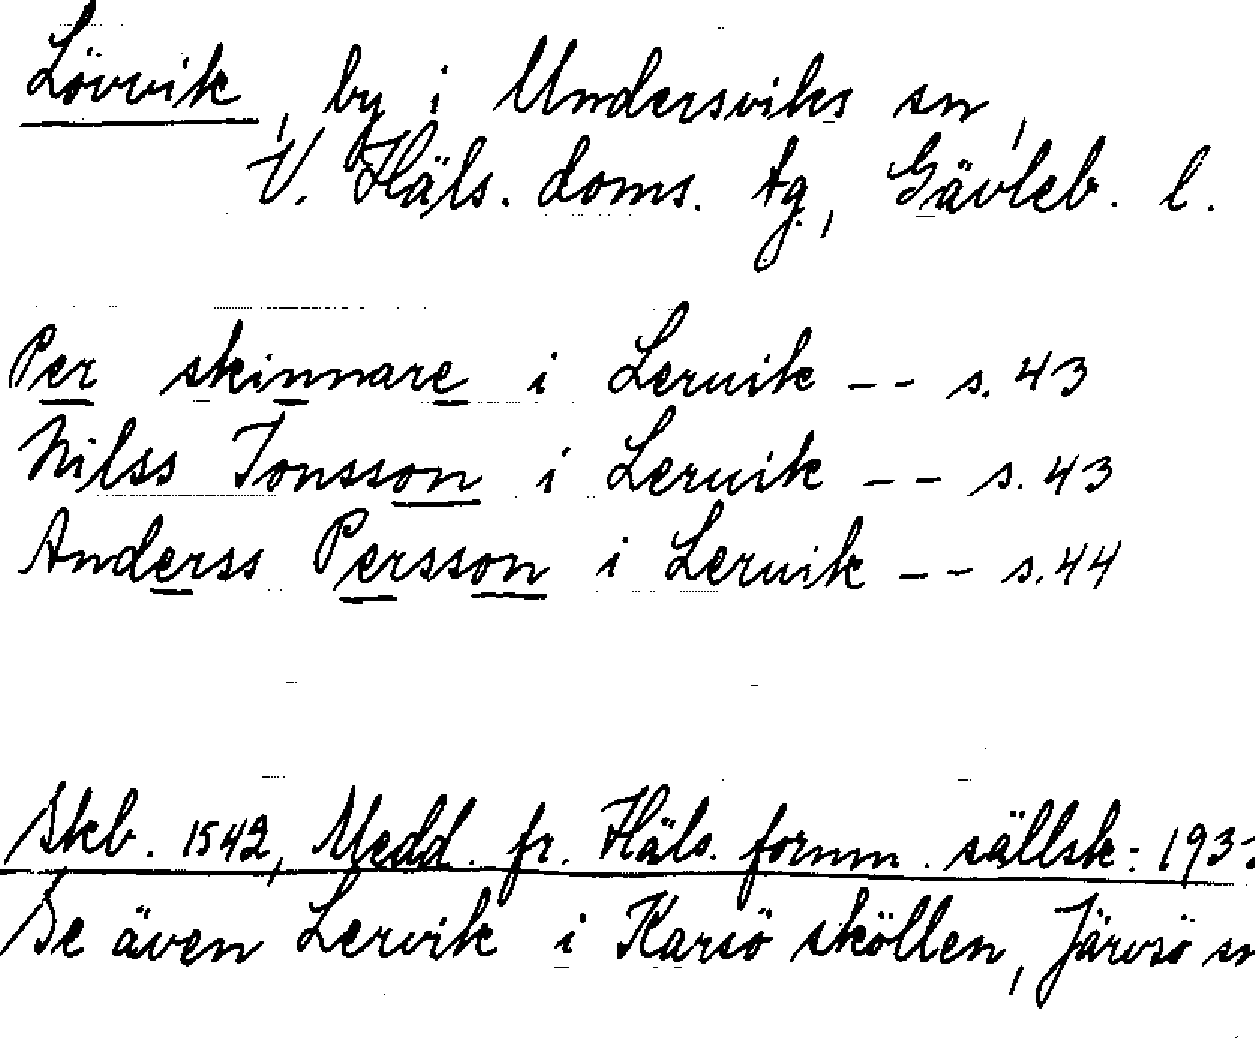 Lövvik, by i Undersviks sn,
V. Häls. doms. tg, Gävleb. l.
Per skinnare i Leruik -- s. 43
Nilss Jonsson i Leruik -- s. 43
Anderss Persson i Leruik -- s. 44
Skb. 1542, Medd. fr. Häls. fornm. sällsk: 193
Se även Lervik i Karsö sköllen, Järvsö sn